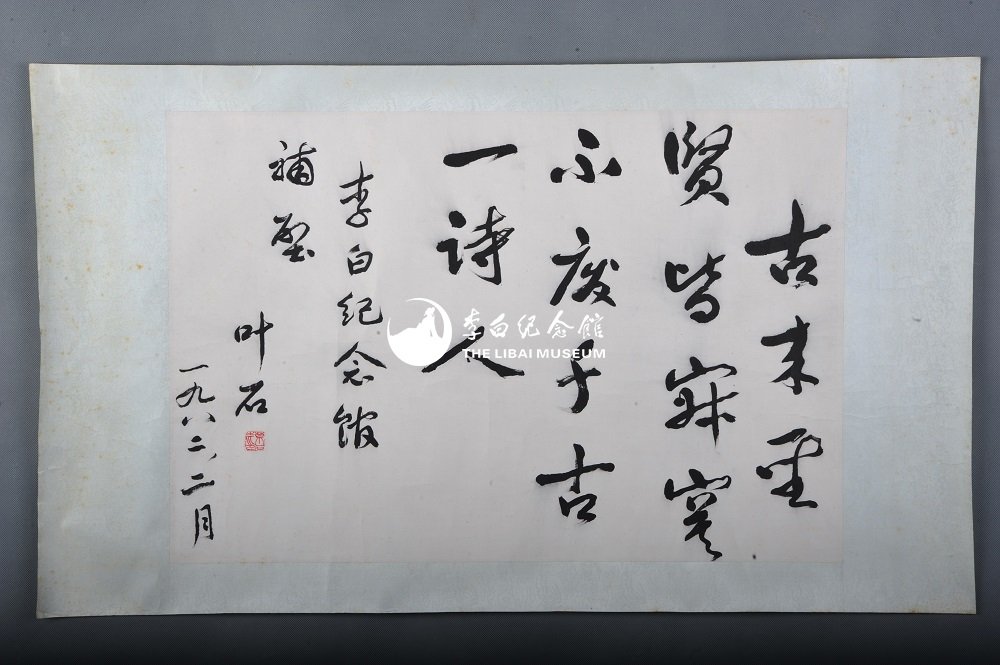 古来聖
賢皆寂寞
不废千古
一诗人
李白纪念馆
補壁
叶石
一九八二、二月
李白纪念馆
THE LIBAI MUSEUM